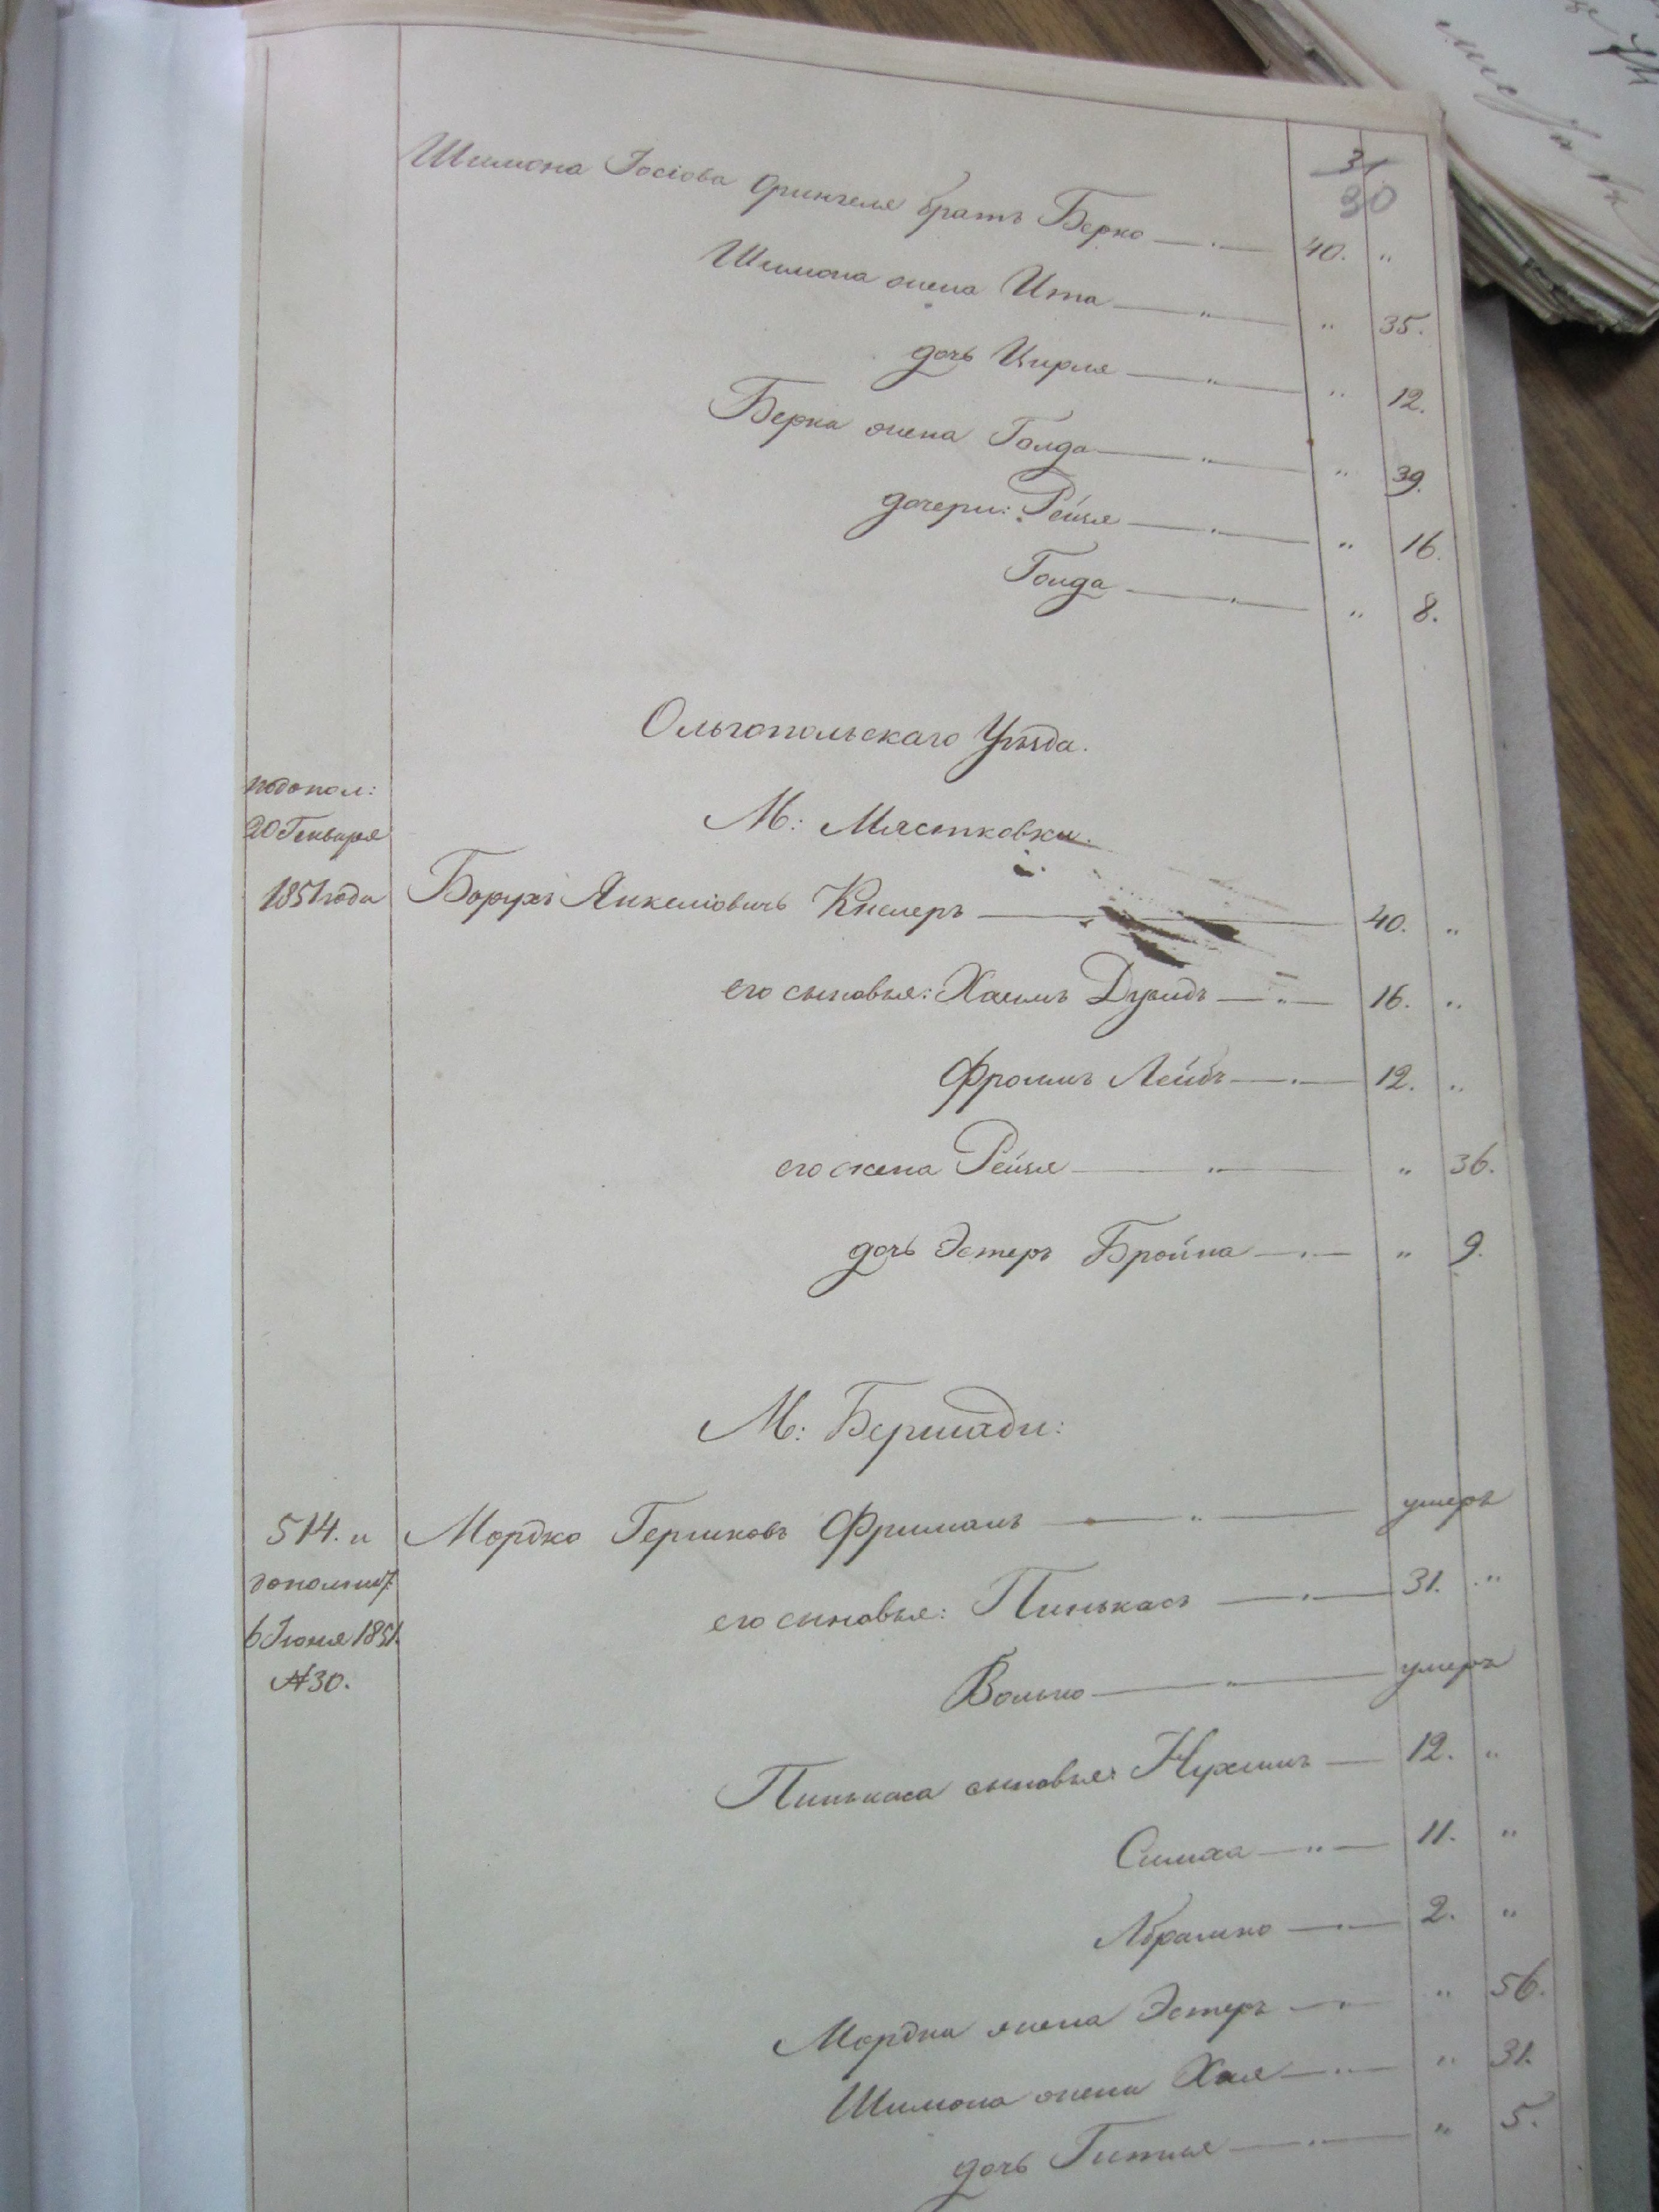 31
30
Шимона Іосіова Фрингеля братъ Берко — 40. "
Шимона жена Ита — " 35.
дочь Цирля — " 12.
Берка жена Голда — " 39.
дочери: Рейзя — " 16.
Голда — " 8.
Ольгопольскаго Уѣзда.
М: Мястковки.
подопол:
20 Генваря
1851 года Борухъ Янкеліовичъ Кнелеръ — 40. "
его сыновья: Хаимъ Дувидъ — 16. "
Фроимъ Лейбъ — 12. "
его жена Рейзя — " 36.
дочь Эстеръ Бройна — " 9.
М: Бершади:
514. и Мордко Гершковъ Фришманъ — умеръ
дополнит.
его сыновья: Пинькасъ — 31. "
6 Іюня 1851.
№30.
Волько — умеръ
Пинькаса сыновья: Нухимъ — 12. "
Симха — 11. "
Абрамко — 2. "
Мордки жена Эстеръ — " 56.
Шимона жена Хая — " 31.
дочь Гитля — " 5.